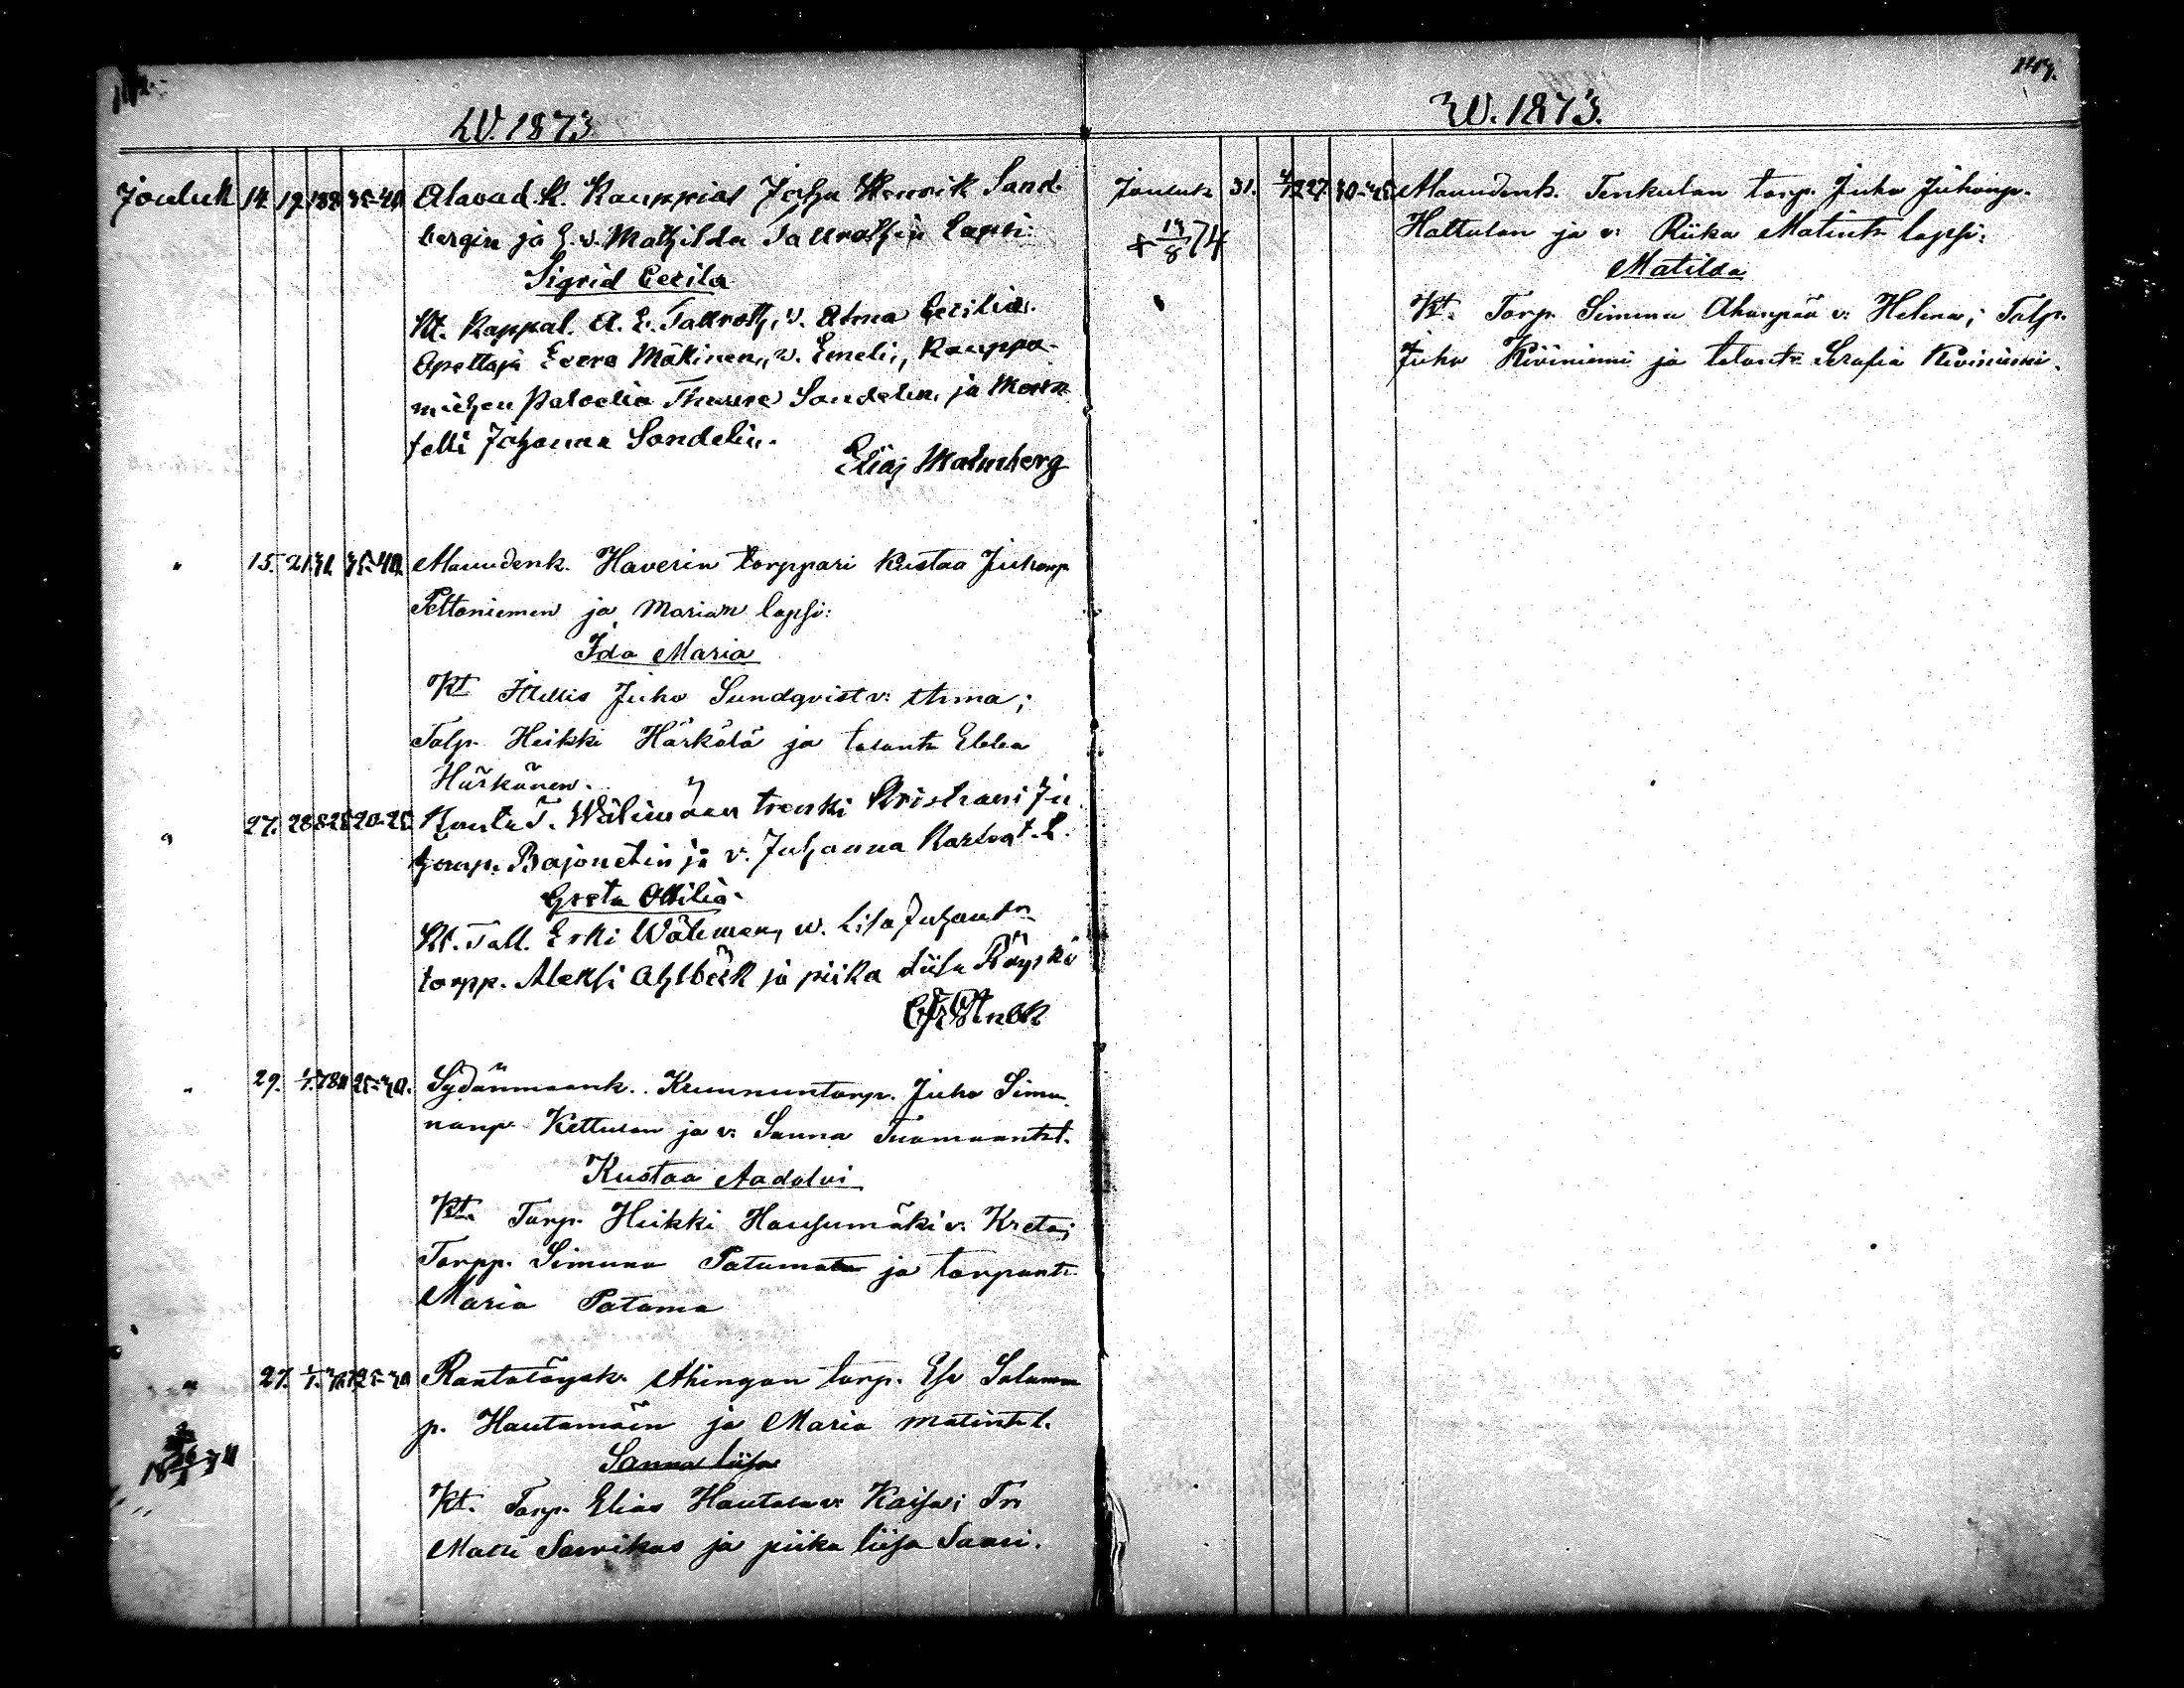 W. 1873
Jouluk 14. 19. 35-40 Alavud. K. Kauppias Joha Henrik Sand-
bergin ja E. v. Mathilda Tallrothin lapsi:
Sigrid Cecilia
Kt. Kappal. A. E. Tallroth, v. Alma Cecilia.
Opettaja Evera Mäkinen, v. Emeli, Kauppa-
miehen Palvelia Thuure Sandelin, ja Mam
selli Johanna Sandelin.
Elias Malmberg
" 15. 21. 35-40. Haverin torppari Kustaa Juhanp
Peltoniemen ja Marian lapsi:
Ida Maria
Kt Juho Sundqvist v: Anna;
Talp. Heikki Härkölä ja talont Ebba
Härkönen.
" 27. 28 20-25 T. Wälimaan trenki Kristiani Ju
hanp. Bajonetin ja v. Juhanna Karlot. l.
Greta Otilia
Kt. Tall. Erki Wälimaa, w. Lisa Juhantr
torpp. Aleksi Ahlbäck ja piika Liisa Räyski
" 29. 25-30. Sydänmaank. Kruununtorp. Juho Simu
nanp. Kettusen ja v: Sanna Tuomaant.l.
Kustaa Aadolvi
Kt. Torp. Heikki Hausumäki v: Kreta;
Torpp. Simuna Patuma ja torpant
Maria Patama
" 27. 25-30 Rantatöysk. Ahingon torp. Esa Salamon
p. Hautamäen ja Maria Matint.l.
Sanna Liisa
Kt. Torp. Elias Hautala v: Kaisa; Tr.
Matti Sarvikas ja piika Liisa Saari.
W. 1873.
Jouluk 31. 27. 40-45 Tenkulan torp. Juho Juhanp.
+ 14/8 74 Haltulan ja v: Riika Matintr lapsi:
Matilda
Kt. Torp. Simuna Ahonpää v: Helena; Talp.
Juho Kiviniemi ja talont: Serafia Kiviniemi.